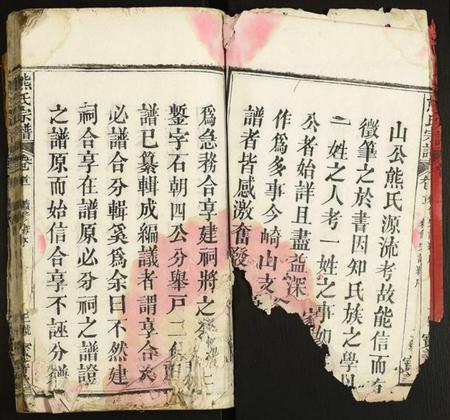 山公熊氏源流考故能信而有
徵筆之於書因知氏族之學以
一姓之人考一姓之事如
公者始詳且盡益深
作爲多事今崎山支
譜者皆感激奮發
爲急務合享建祠將之
鏨字石朝四公分舉戸二
譜已纂輯成編議者謂享合
必譜合分輯奚爲余曰不然建
祠合享在譜原必分祠之譜證
之譜原而始信合享不誣分譜
熊氏宗譜
卷首
氏宗譜
卷首